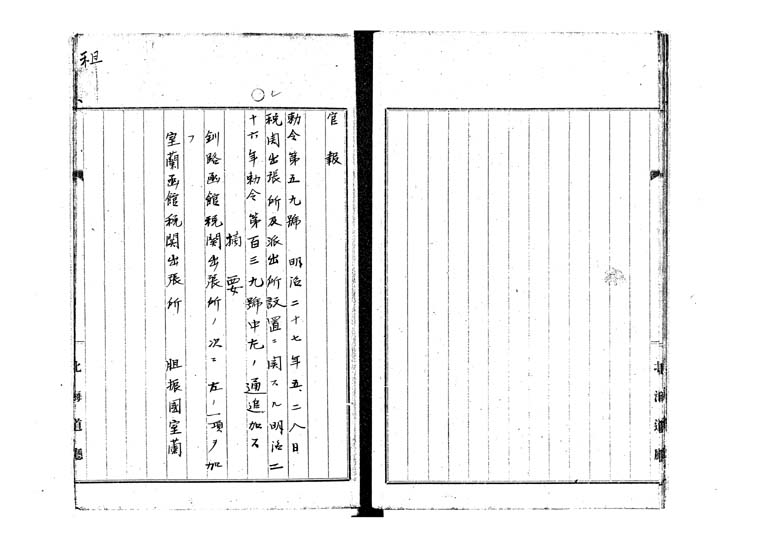 官報
勅令第五九號　明治二十七年五、二八日
税関出張所及派出所設置ニ関スル明治二
十六年勅令第百三九號中左ノ通追加ス
摘要
釧路函館税関出張所ノ次ニ左ノ一項ヲ加
フ
室蘭函館税関出張所　胆振國室蘭
租
北海道廳
北海道廳